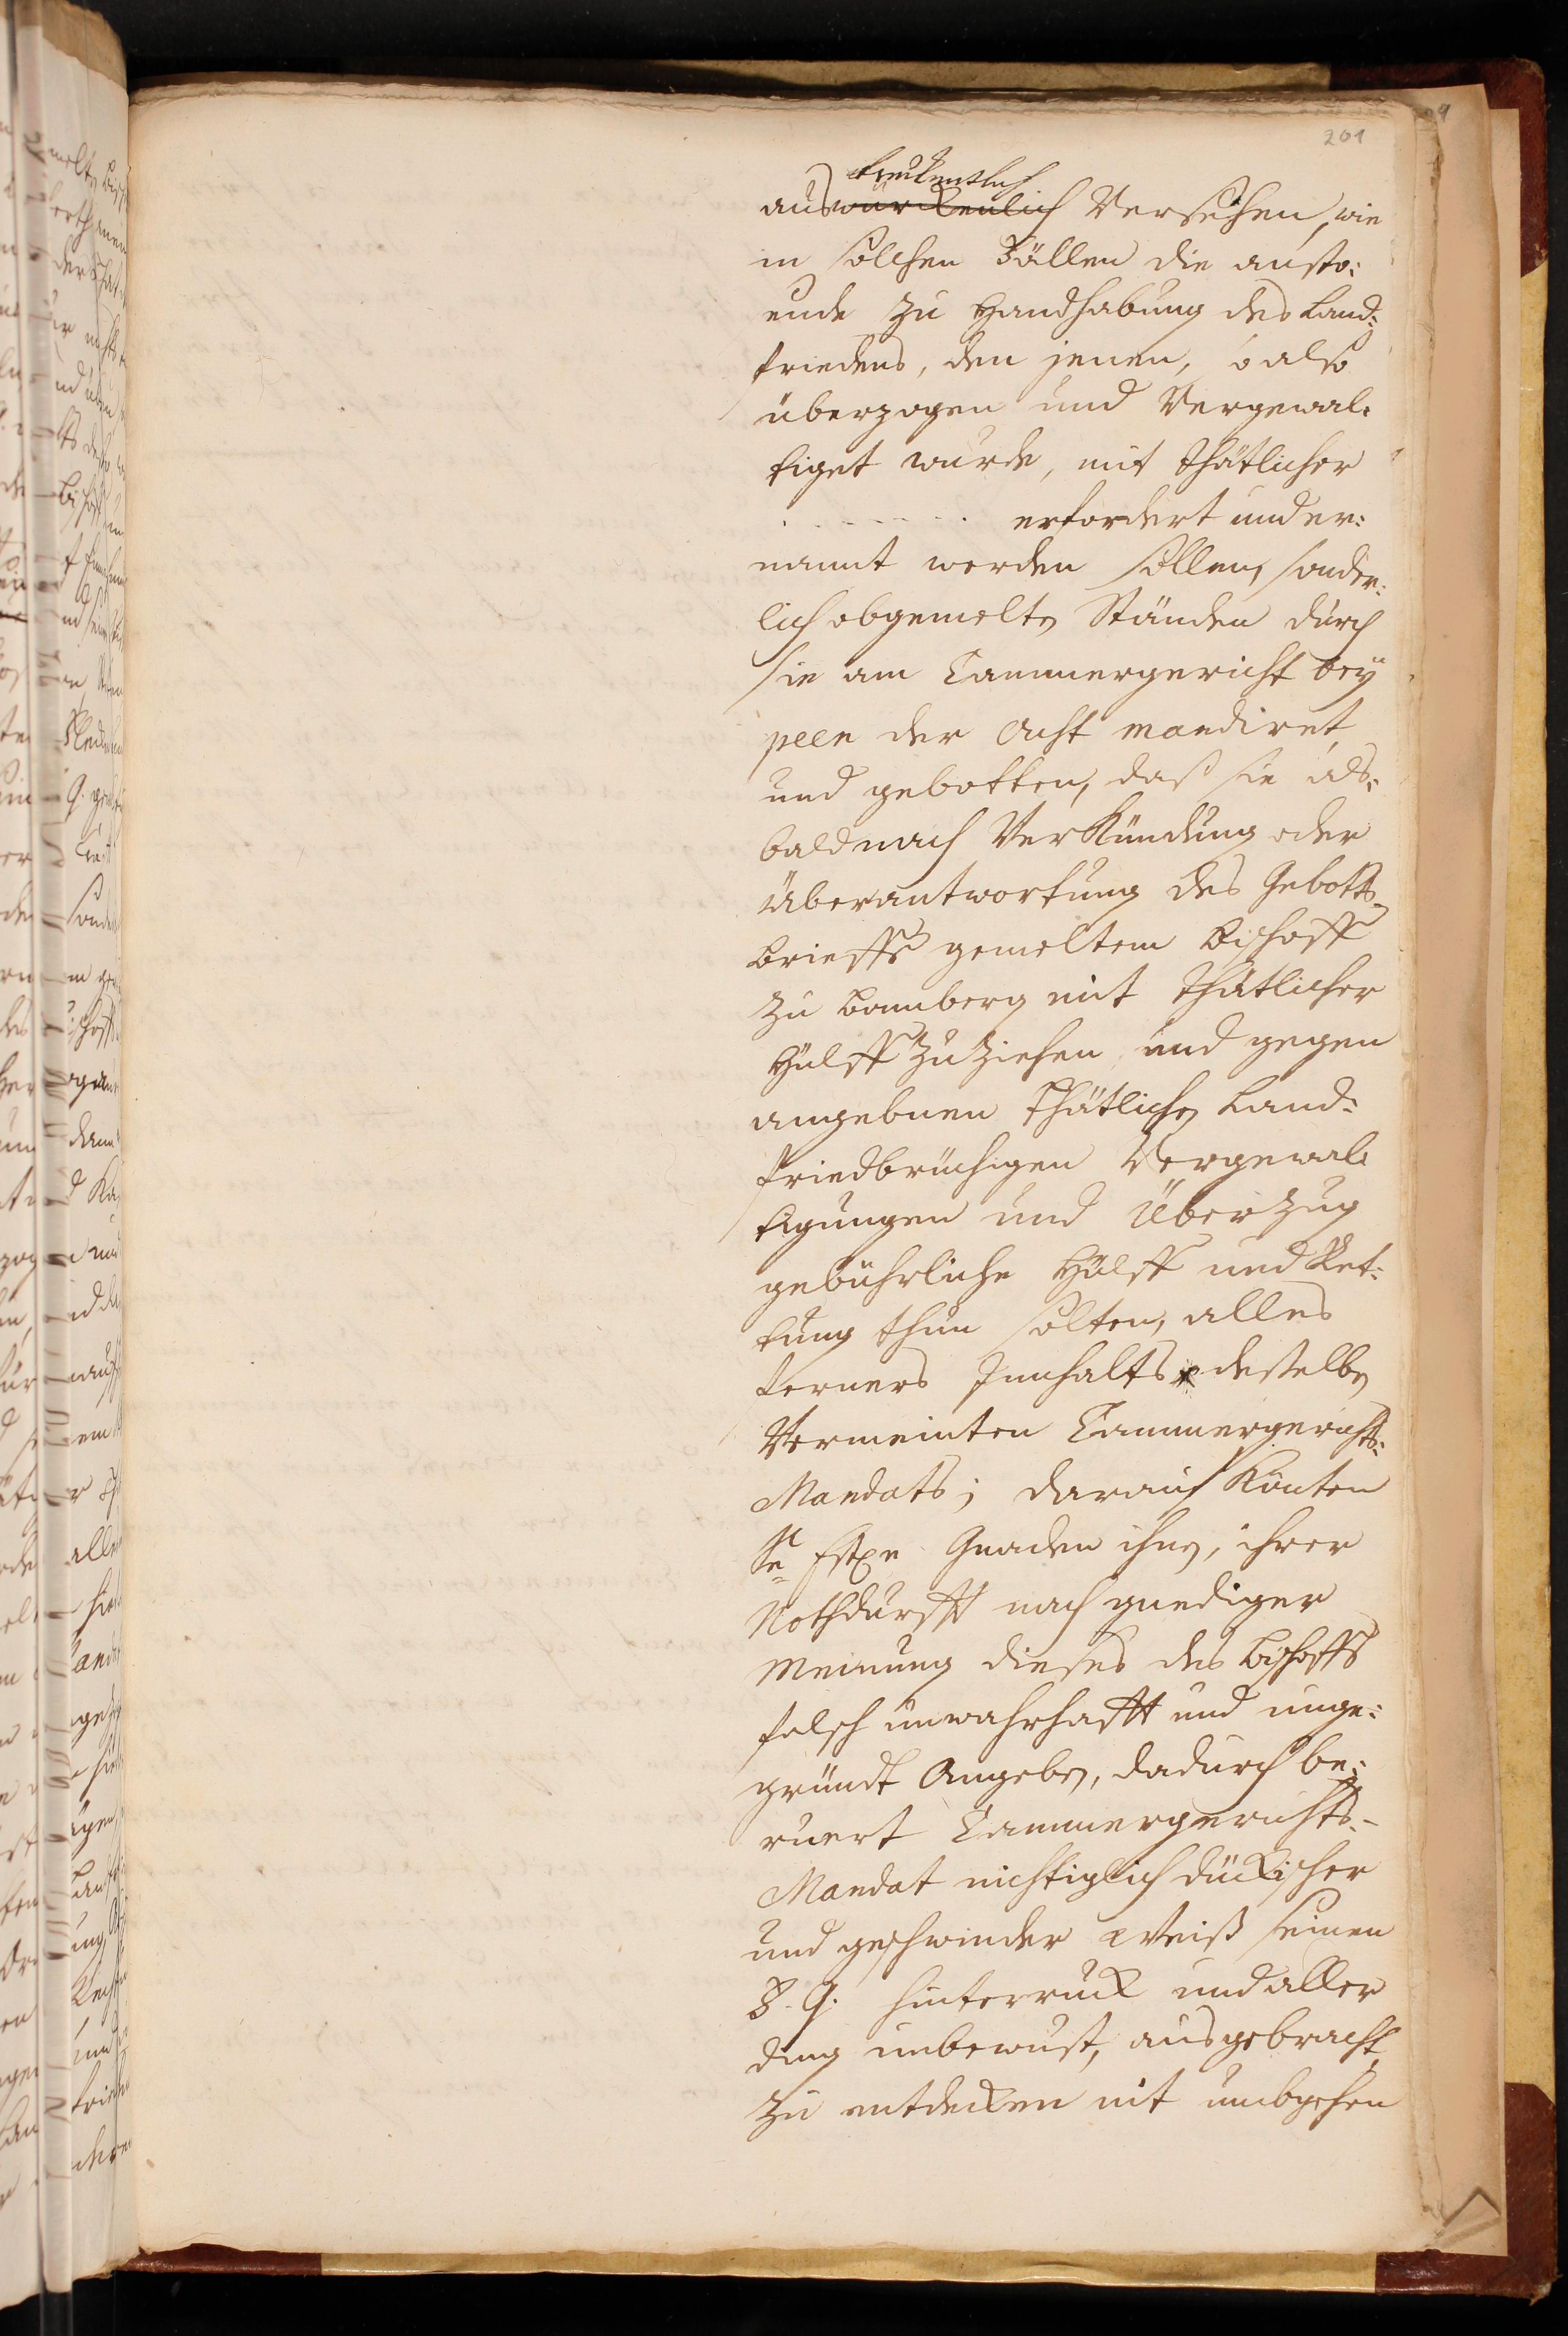 201
trukentlich
auswürckenlich Versehen, wie
in solchen Fällen die ansto:
ende zu Handhabung des Land:
friedens, den jenen, so also
überzogen und Vergewal:
tiget wurde, mit thätlicher
. . . . . . . erfordert und er:
namt werden sollen, sonder:
lich obgemelte Ständen durch
sie am Cammergericht bey
peen der Acht mandiret
und gebotten, daß sie als:
bald nach Verkündung oder
Überantwortung des Gebotts
brieffs gemeltem Bischoff
zu Bamberg mit thätlicher
Hülff zu ziehen und gegen
angebnen thätliche Land:
friedbrüchigen Vergewal
tigungen und Überzug
gebührliche Hülff und Ret:
tung thun solten, alles
ferners Innhalts desselbe
Vermeinten Cammergerichts:
Mandats; darauf könten
Se fstln Gnaden ihne, ihrer
Nothdurfft nach gnediger
Meinung dieses des Bischoffs
falsch unwahrhafft und unge:
gründt Angeben, dadurch be:
ruert Cammergerichts-
Mandat nichtiglich dückischer
und geschwinder Weiß seinen
F. G. hinterruck und aller
ding unbewust, ausgebracht,
zu entdecken nit umbgehen